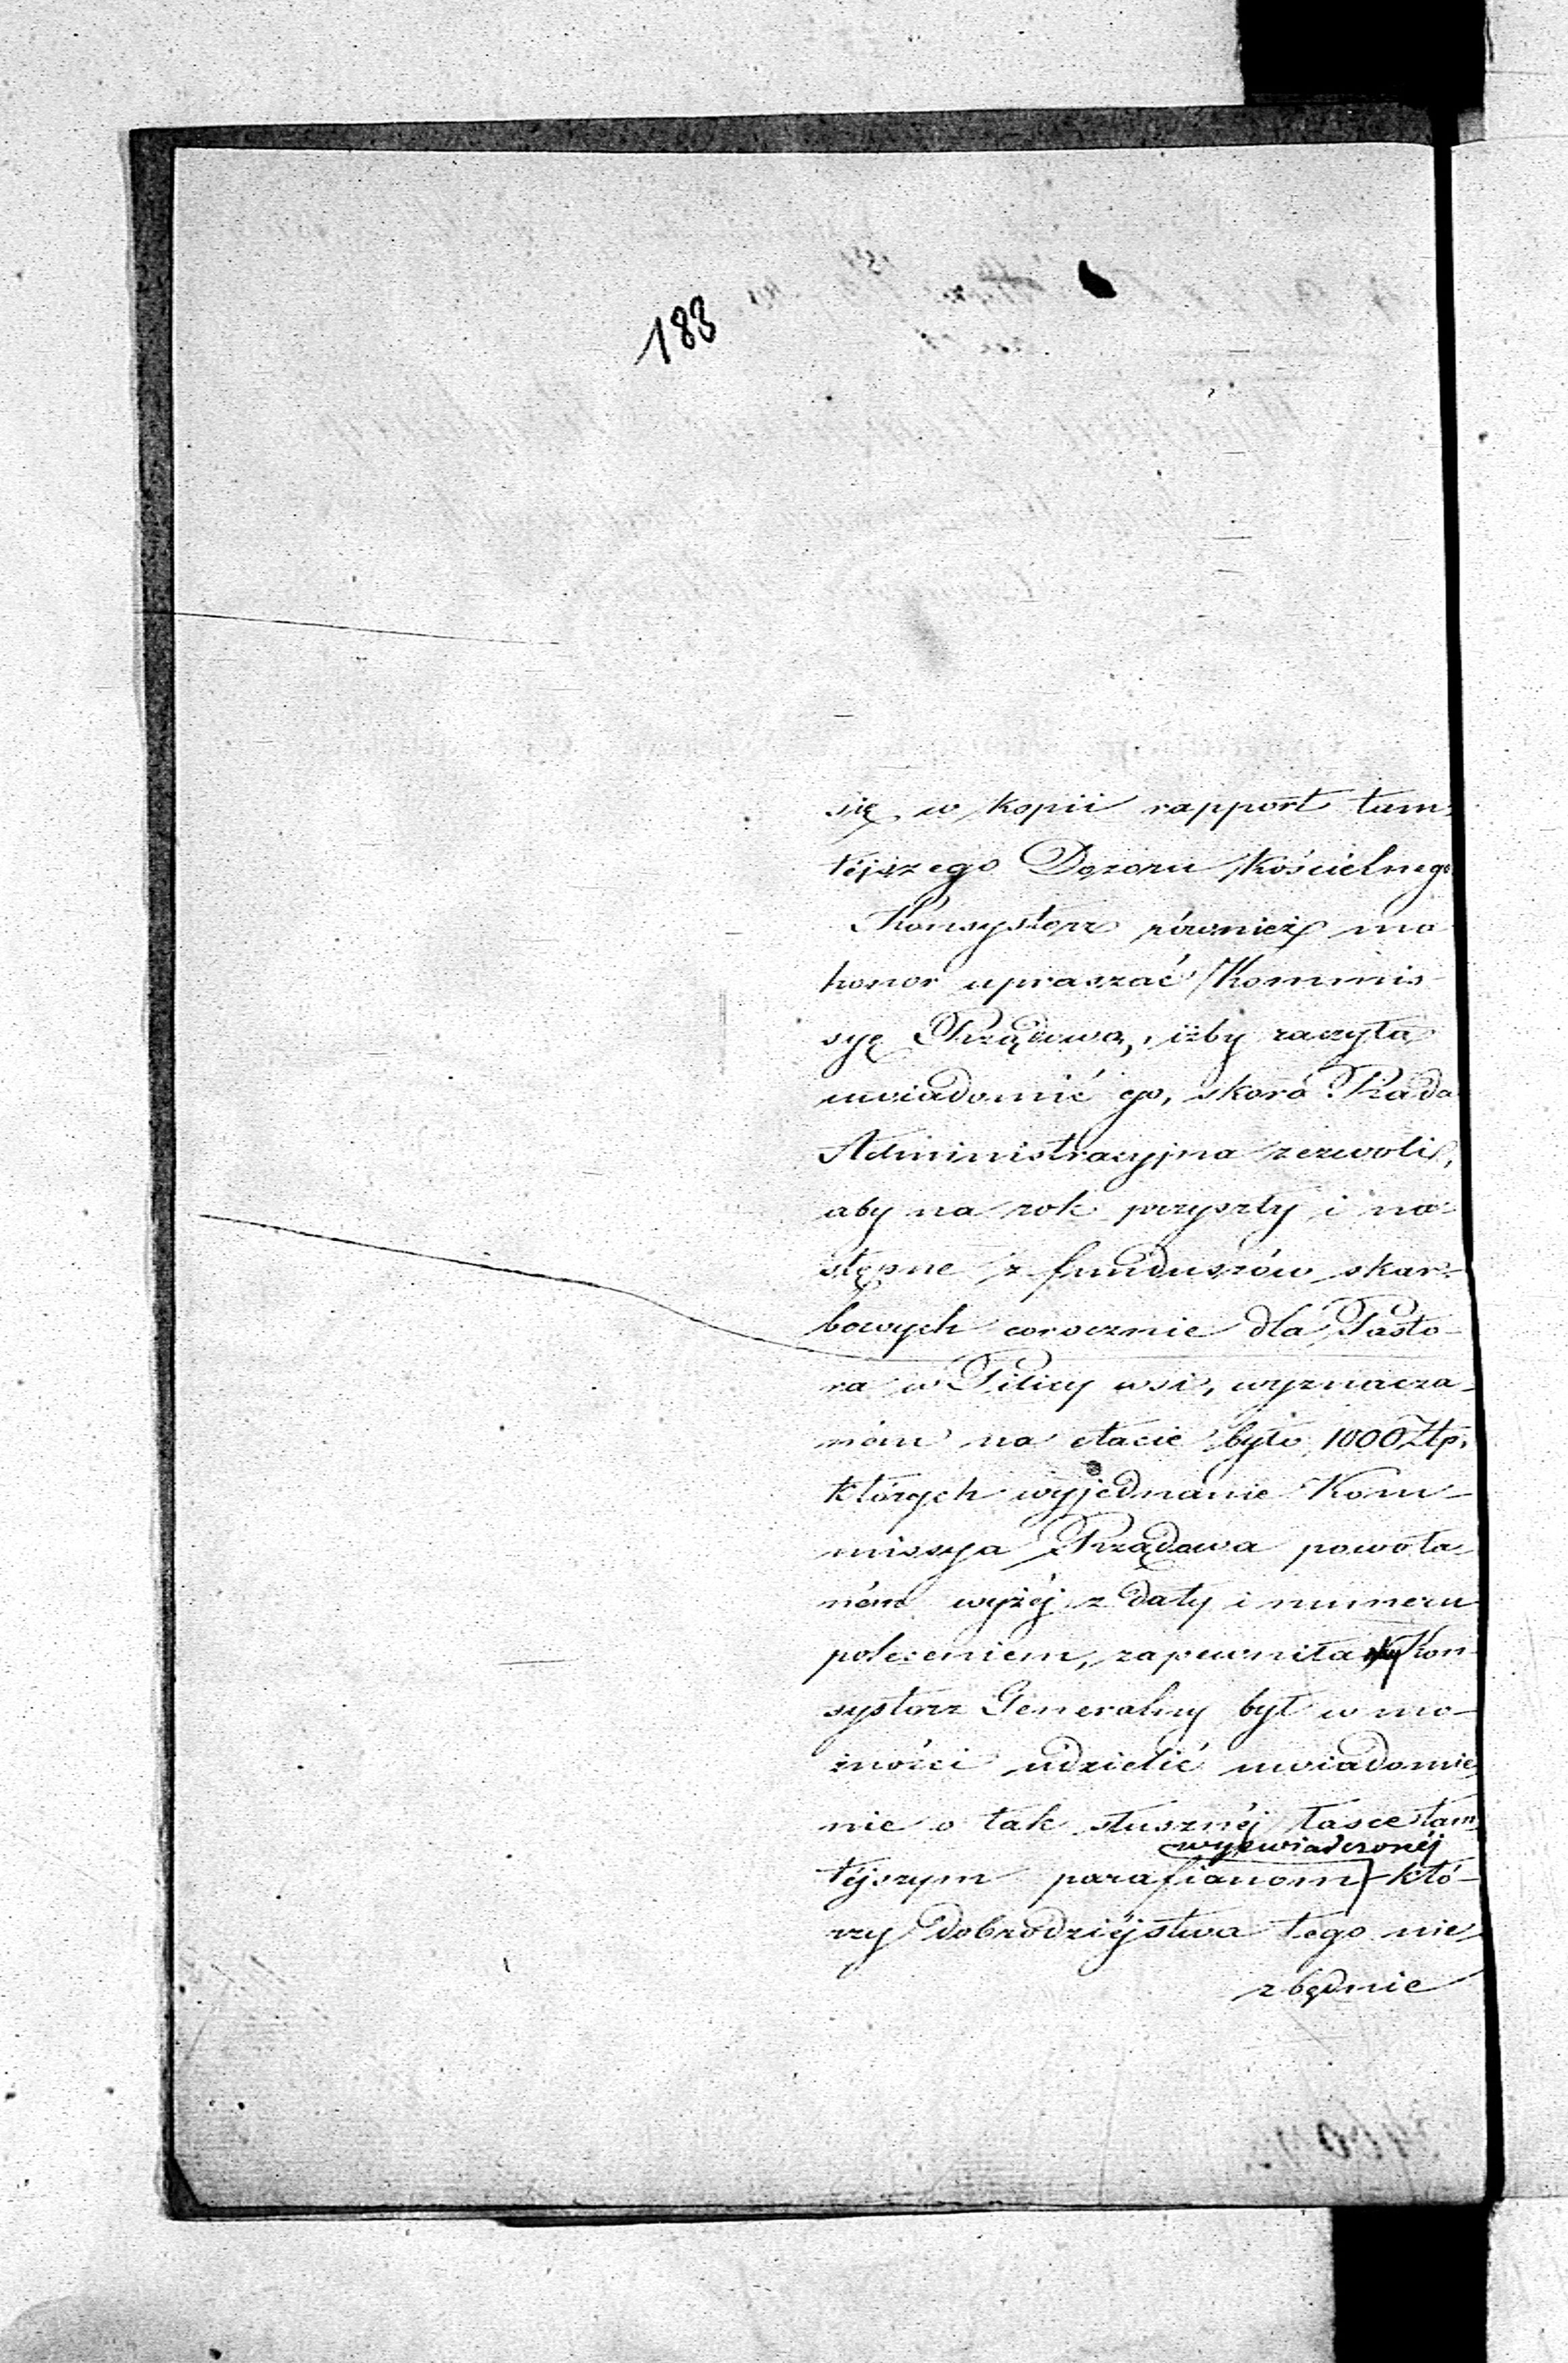 183
się w kopii rapport tam-
tejszego Dozoru Kościelnego
Konsystorz również ma
honor upraszać Kommis-
syę Rządową, iżby raczyła
uwiadomić go, skoro Rada
Administracyjna zezwoli,
aby na rok przyszły i na-
stępne z funduszów skar-
bowych corocznie dla Pasto-
ra w Pilicy wsi, wyznacza-
ném na etacie było 1000 Złp.
których wyjednanie Kom-
missya Rządowa powoła-
ném wyżéj z daty i numeru
poleceniem, zapewniła Kon-
systorz Generalny był w mo-
żności udzielić uwiadomie-
nie o tak słusznéj łasce tam-
wyświadczonéj
téjszym parafianom któ-
rzy dobrodziéjstwa tego nie-
zbędnie